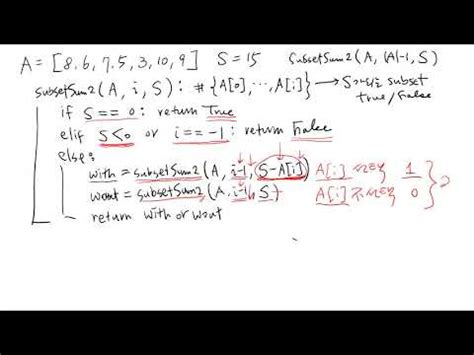 A = [8, 6, 7, 5, 3, 10, 9] S = 15 subsetSum2(A, |A|-1, S)
subsetSum2(A, i, S): # {A[0], ..., A[i]} → S가 되는 subset
True/False
if S == 0: return True
elif S<0 or i == -1: return False
else:
with = subsetSum2(A, i-1, S-A[i]) A[i] 1
wout = subsetSum2(A, i-1, S) A[i] 0
return with or wout